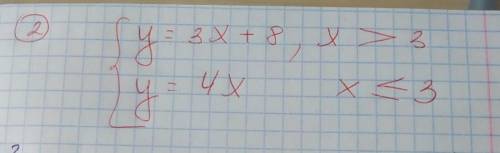 2 { y = 3x + 8, x > 3
y = 4x x ≤ 3